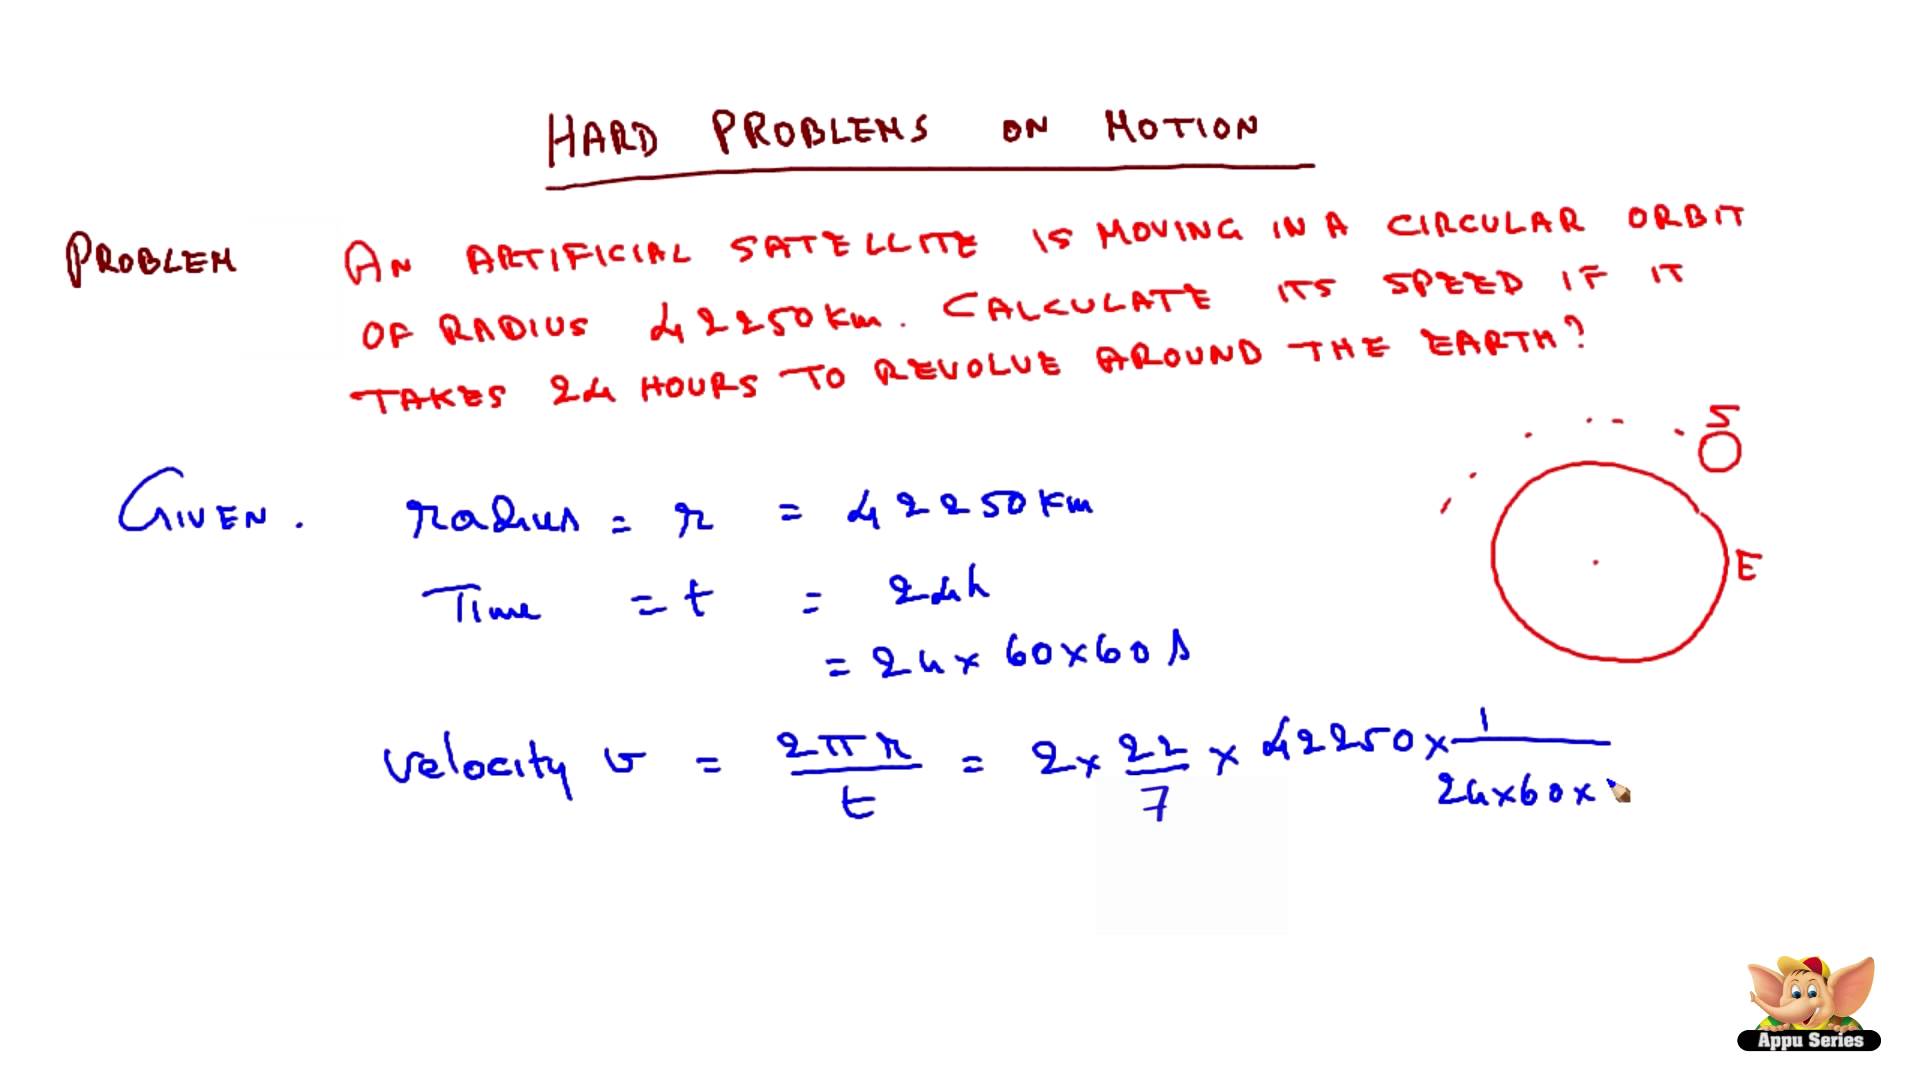 HARD PROBLEMS ON MOTION
PROBLEM AN ARTIFICIAL SATELLITE IS MOVING IN A CIRCULAR ORBIT
OF RADIUS 42250 Km. CALCULATE ITS SPEED IF IT
TAKES 24 HOURS TO REVOLVE AROUND THE EARTH?
S
GIVEN. radius = r = 42250 Km
E
Time = t = 24h
= 24 × 60 × 60 s
velocity v = 2πr/t = 2 × 22/7 × 42250 × 1/24×60×
Appu Series